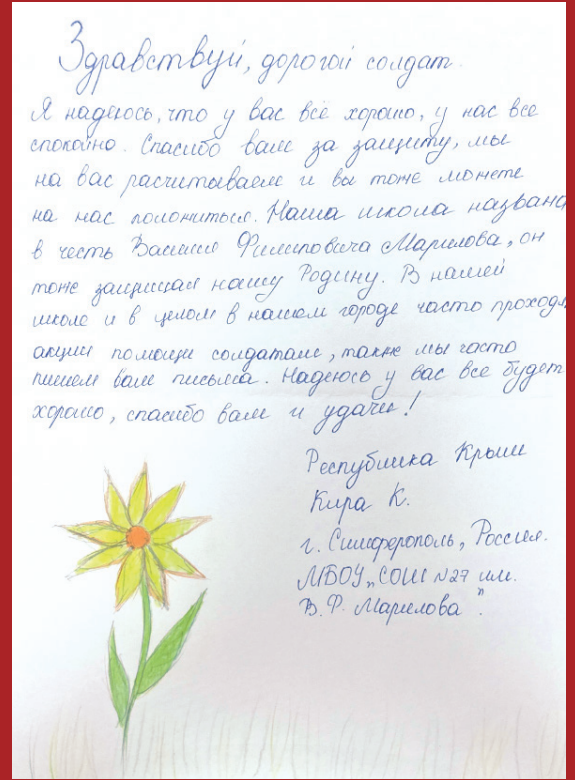 Здравствуй, дорогой солдат.
Я надеюсь, что у вас всё хорошо, у нас все
спокойно. Спасибо вам за защиту, мы
на вас расчитываем и вы тоже можете
на нас положиться. Наша школа названа
в честь Василия Филиповича Маргелова, он
тоже защищал нашу Родину. В нашей
школе и в целом в нашем городе часто проходя
акции помощи солдатам, также мы часто
пишем вам письма. Надеюсь у вас все будет
хорошо, спасибо вам и удачи!
Республика Крым
Кира К.
г. Симферополь, Россия.
МБОУ „СОШ №27 им.
В. Ф. Маргелова".